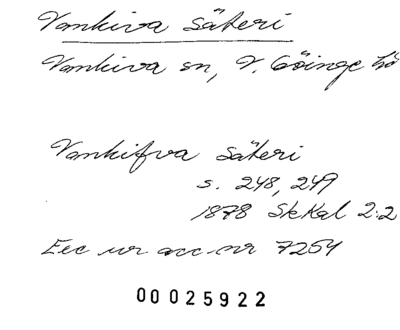 Vankiva säteri
Vankiva sn, V. Göinge hd
Vankifva säteri
s. 248, 249
1878 SkKal 2:2
Exc ur acc.nr 7254
00025922